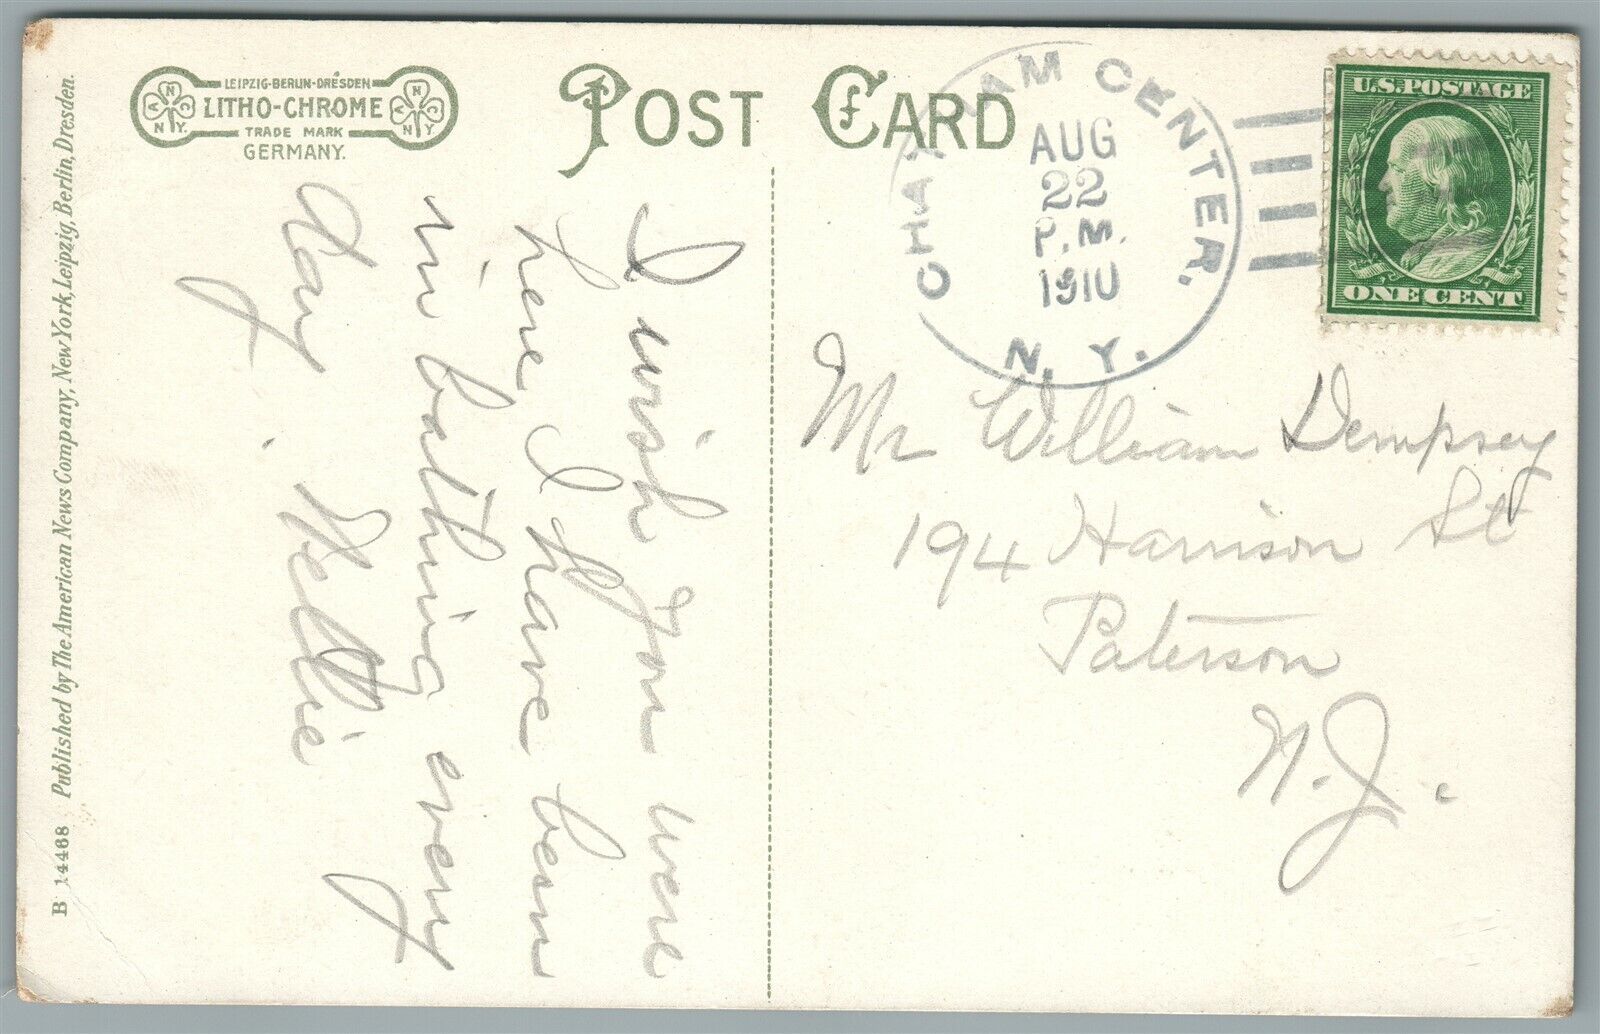 LEIPZIG-BERLIN-DRESDEN
LITHO-CHROME
TRADE MARK
GERMANY.
ANC
N.Y.
ANC
N.Y.
POST CARD
CHATHAM CENTER.
AUG
22
P.M.
1910
N. Y.
U.S. POSTAGE
ONE CENT
B 14468 Published by The American News Company, New York, Leipzig, Berlin, Dresden.
I wish you were
here I have been
in bathing every
day.
Nellie
Mr William Dempsey
194 Harrison St
Paterson
N.J.